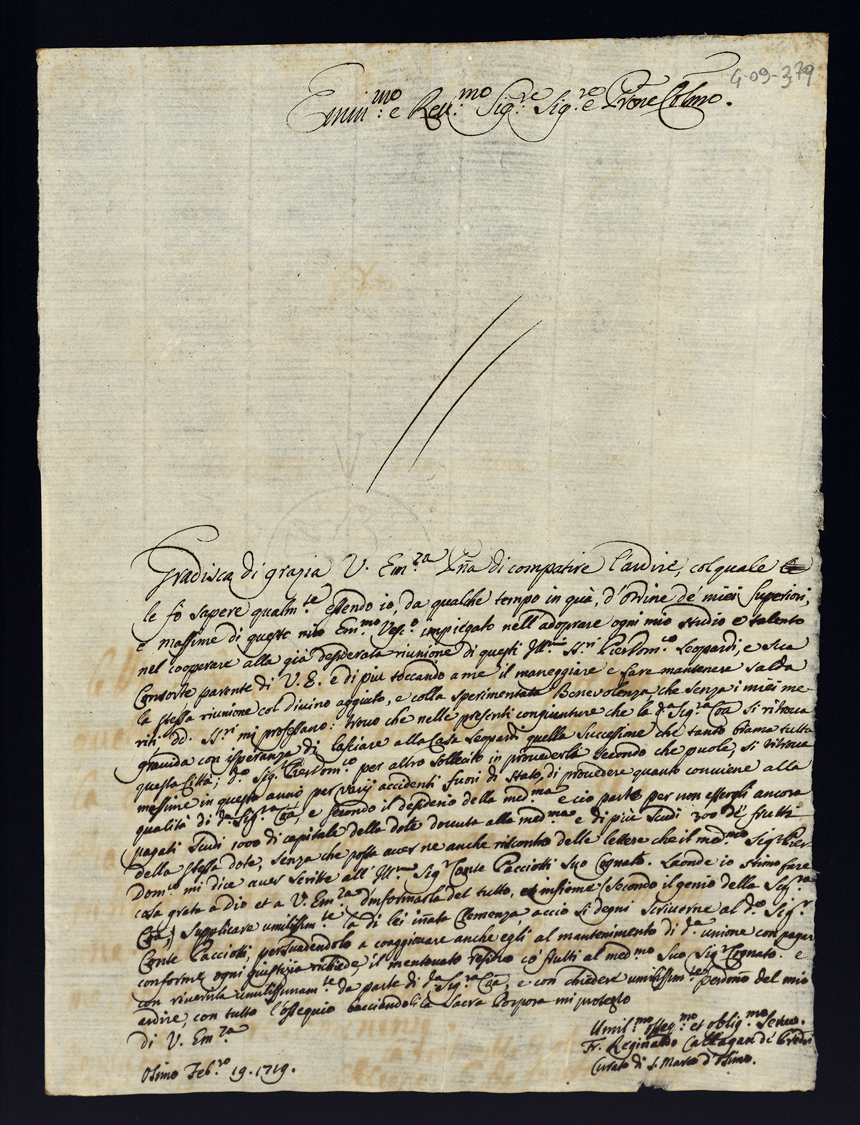 G-09-379
Emin.mo e Rev.mo Sig.re Sig.re e Prone Colmo.
Gradisca di grazia V. Em.za Vña di compatire l'ardire, col quale
le fò sapere qualm.te essendo io, da qualche tempo in quà, d'ordine de' miei Superiori,
e massime di questo mio Em.mo Vesc.o impiegato nell'adoprare ogni mio studio e talento
nel cooperare alla già desiderata riunione di questi Ill.mi SS.ri Pierdom.co Leopardi, e sua
Consorte parente di V. E. e di più toccando a me il maneggiare e fare mantenere salda
la stessa riunione col divino aggiuto, e colla sperimentata Benevolenza che senza i miei me
riti dd. SS.ri mi professano: trovo che nelle presenti congiunture che la d.a Sig.ra Cõa si ritrova
gravida con isperanza di lasciare alla Casa Leopardi quella successione che tanto brama tutta
questa Città; d.o Sig.r Pierdom.co per altro sollecito in provederla secondo che puole, si ritrova
messime in questo anno per varij accidenti fuori di stato, di provedere quanto conviene alla
qualità di d.a Sig.ra Cõa, e secondo il desiderio della med.ma e ciò parte per non essergli ancora
pagati scudi 1000 di capitale della dote dovuta alla med.ma e di più scudi 300 de' frutti
della stessa dote, senza che possa aver ne anche riscontro delle lettere che il med.mo Sig.r Pier
Dom.co mi dice aver scritte all'Ill.mo Sig.r Conte Pacciotti suo Cognato. Laonde io stimo fare
cosa grata a Dio et a V. Em.za d'informarla del tutto, et insieme secondo il genio della Sig.ra
Cõa, supplicare umilissim.te la di lei iñata Clemenza acciò si degni scriverne al d.o Sig.r
Conte Pacciotti, persuadendolo a cooperare anche egli al mantenimento di d.a unione con pagar
conforme ogni giustizia richiede, il mentovato residuo co' frutti al med.mo suo Sig.r Cognato. e
con riverirla umilissimam.te da parte di d.a Sig.ra Cõa, e con chiedere umilissim.te perdono del mio
ardire, con tutto l'ossequio bacciandole la Sacra Porpora mi protesto
di V. Em.za
Umil.mo osseq.mo et oblig.mo Servo.
Fr. Reginaldo
Curato di S. Marco d'Osimo.
Osimo Feb.ro 19. 1719.